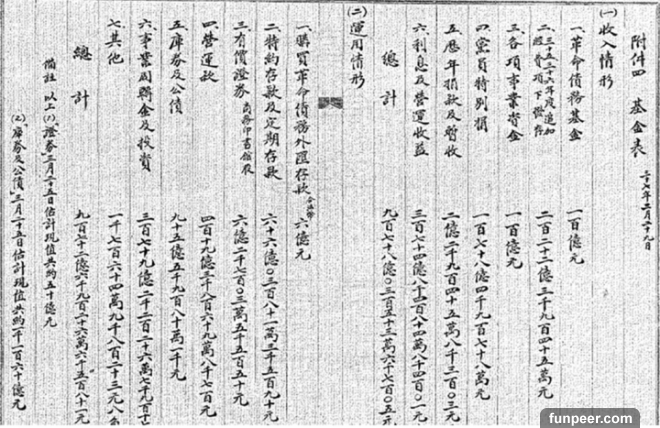 附件四 基金表 二十七年二月二十九日
(一)收入情形
一、革命債務基金 一百億元
二、三十五三十六年度追加經費項下撥存 二百二十二億三千九百四十五萬元
三、各項事業資金 一百億元
四、黨員特別捐 一百七十八億四千九百七十八萬元
五、歷年捐款及暫收 二億二千九百四十五萬八千三百〇三元
六、利息及營運收益 三百七十四億八十四萬八十四百〇一元
總計 九百七十八億〇三百五十三萬六千七百〇五元
(二)運用情形
一、購買革命債務外匯存款 合法幣 六億元
二、特約存款及定期存款 六十六億〇三百八十一萬三千五百九十元
三、有價證券 商務印書館股 六億二千七百〇三萬五千五百五十元
四、營運款 四百十九億三千八百六十九萬八千七百元
五、庫券及公債 九十五億五千九百八十萬一千元
六、事業周轉金及投資 三百七十九億二千二百二十六萬七千九百
七、其他 一千七百六十四萬九千八百二十三元八
總計 九百七十二億六千九百二十六萬六千五百八十一元
備註 以上(1)證券三月二十五日估計現值共約五十億元
(2)庫券及公債三月二十五日估計現值共約一千一百六十億元
funpeer.com